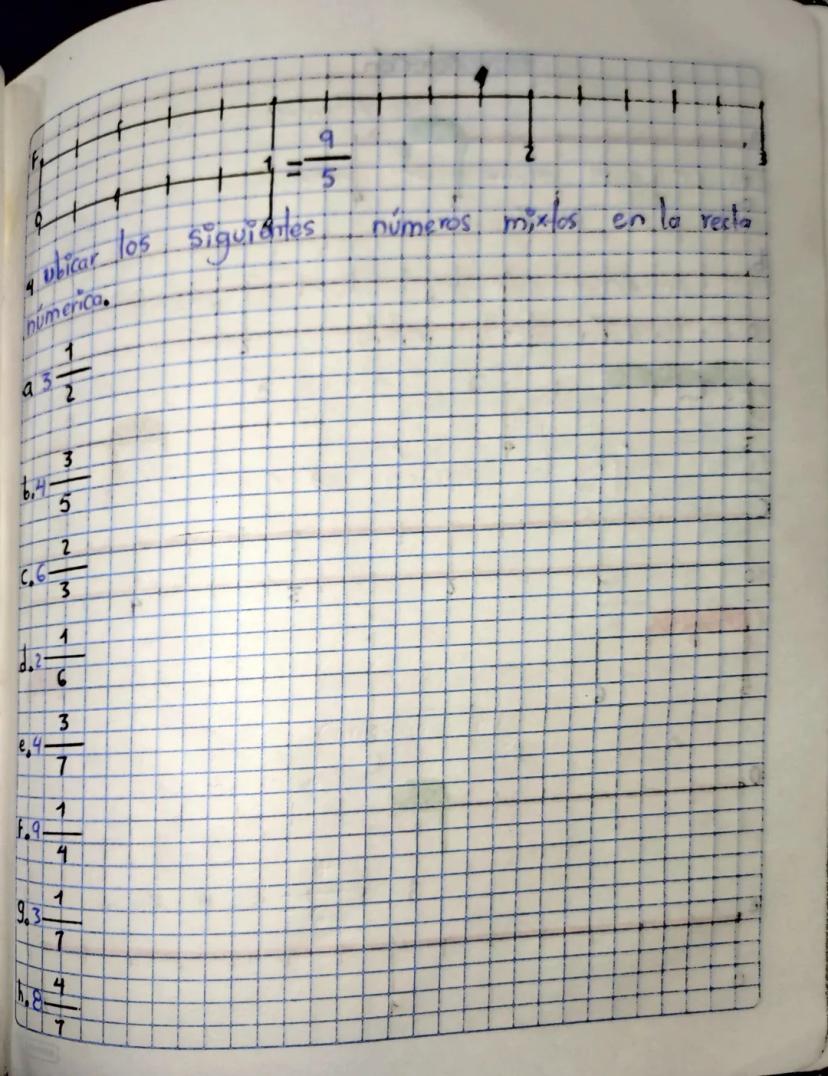 F
0 1 = 9/5 2 3
4 ubicar los siguientes números mixtos en la recta
númerica.
a 3 1/2
b. 4 3/5
c. 6 2/3
d. 2 1/6
e. 4 3/7
f. 9 1/4
g. 3 1/7
h. 8 4/7